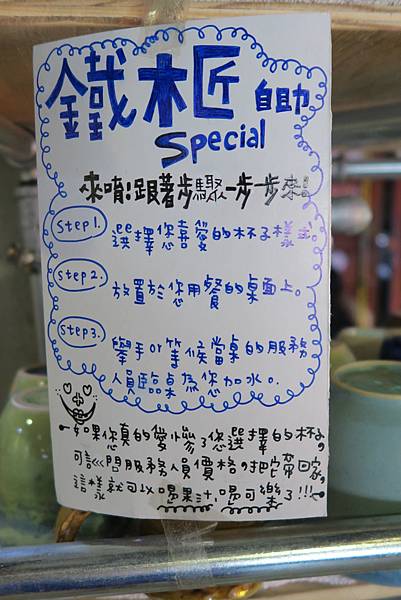 鐵木匠 自助
Special
來唷!跟著步驟一步一步來!!
Step 1.
選擇您喜愛的杯子樣式。
Step 2.
放置於您用餐的桌面上。
Step 3.
舉手or等候當桌的服務
人員臨桌為您加水。
如果您真的愛慘了您選擇的杯子,
可詢問服務人員價格,把它帶回家,
這樣就可以喝果汁,喝可樂了!!!